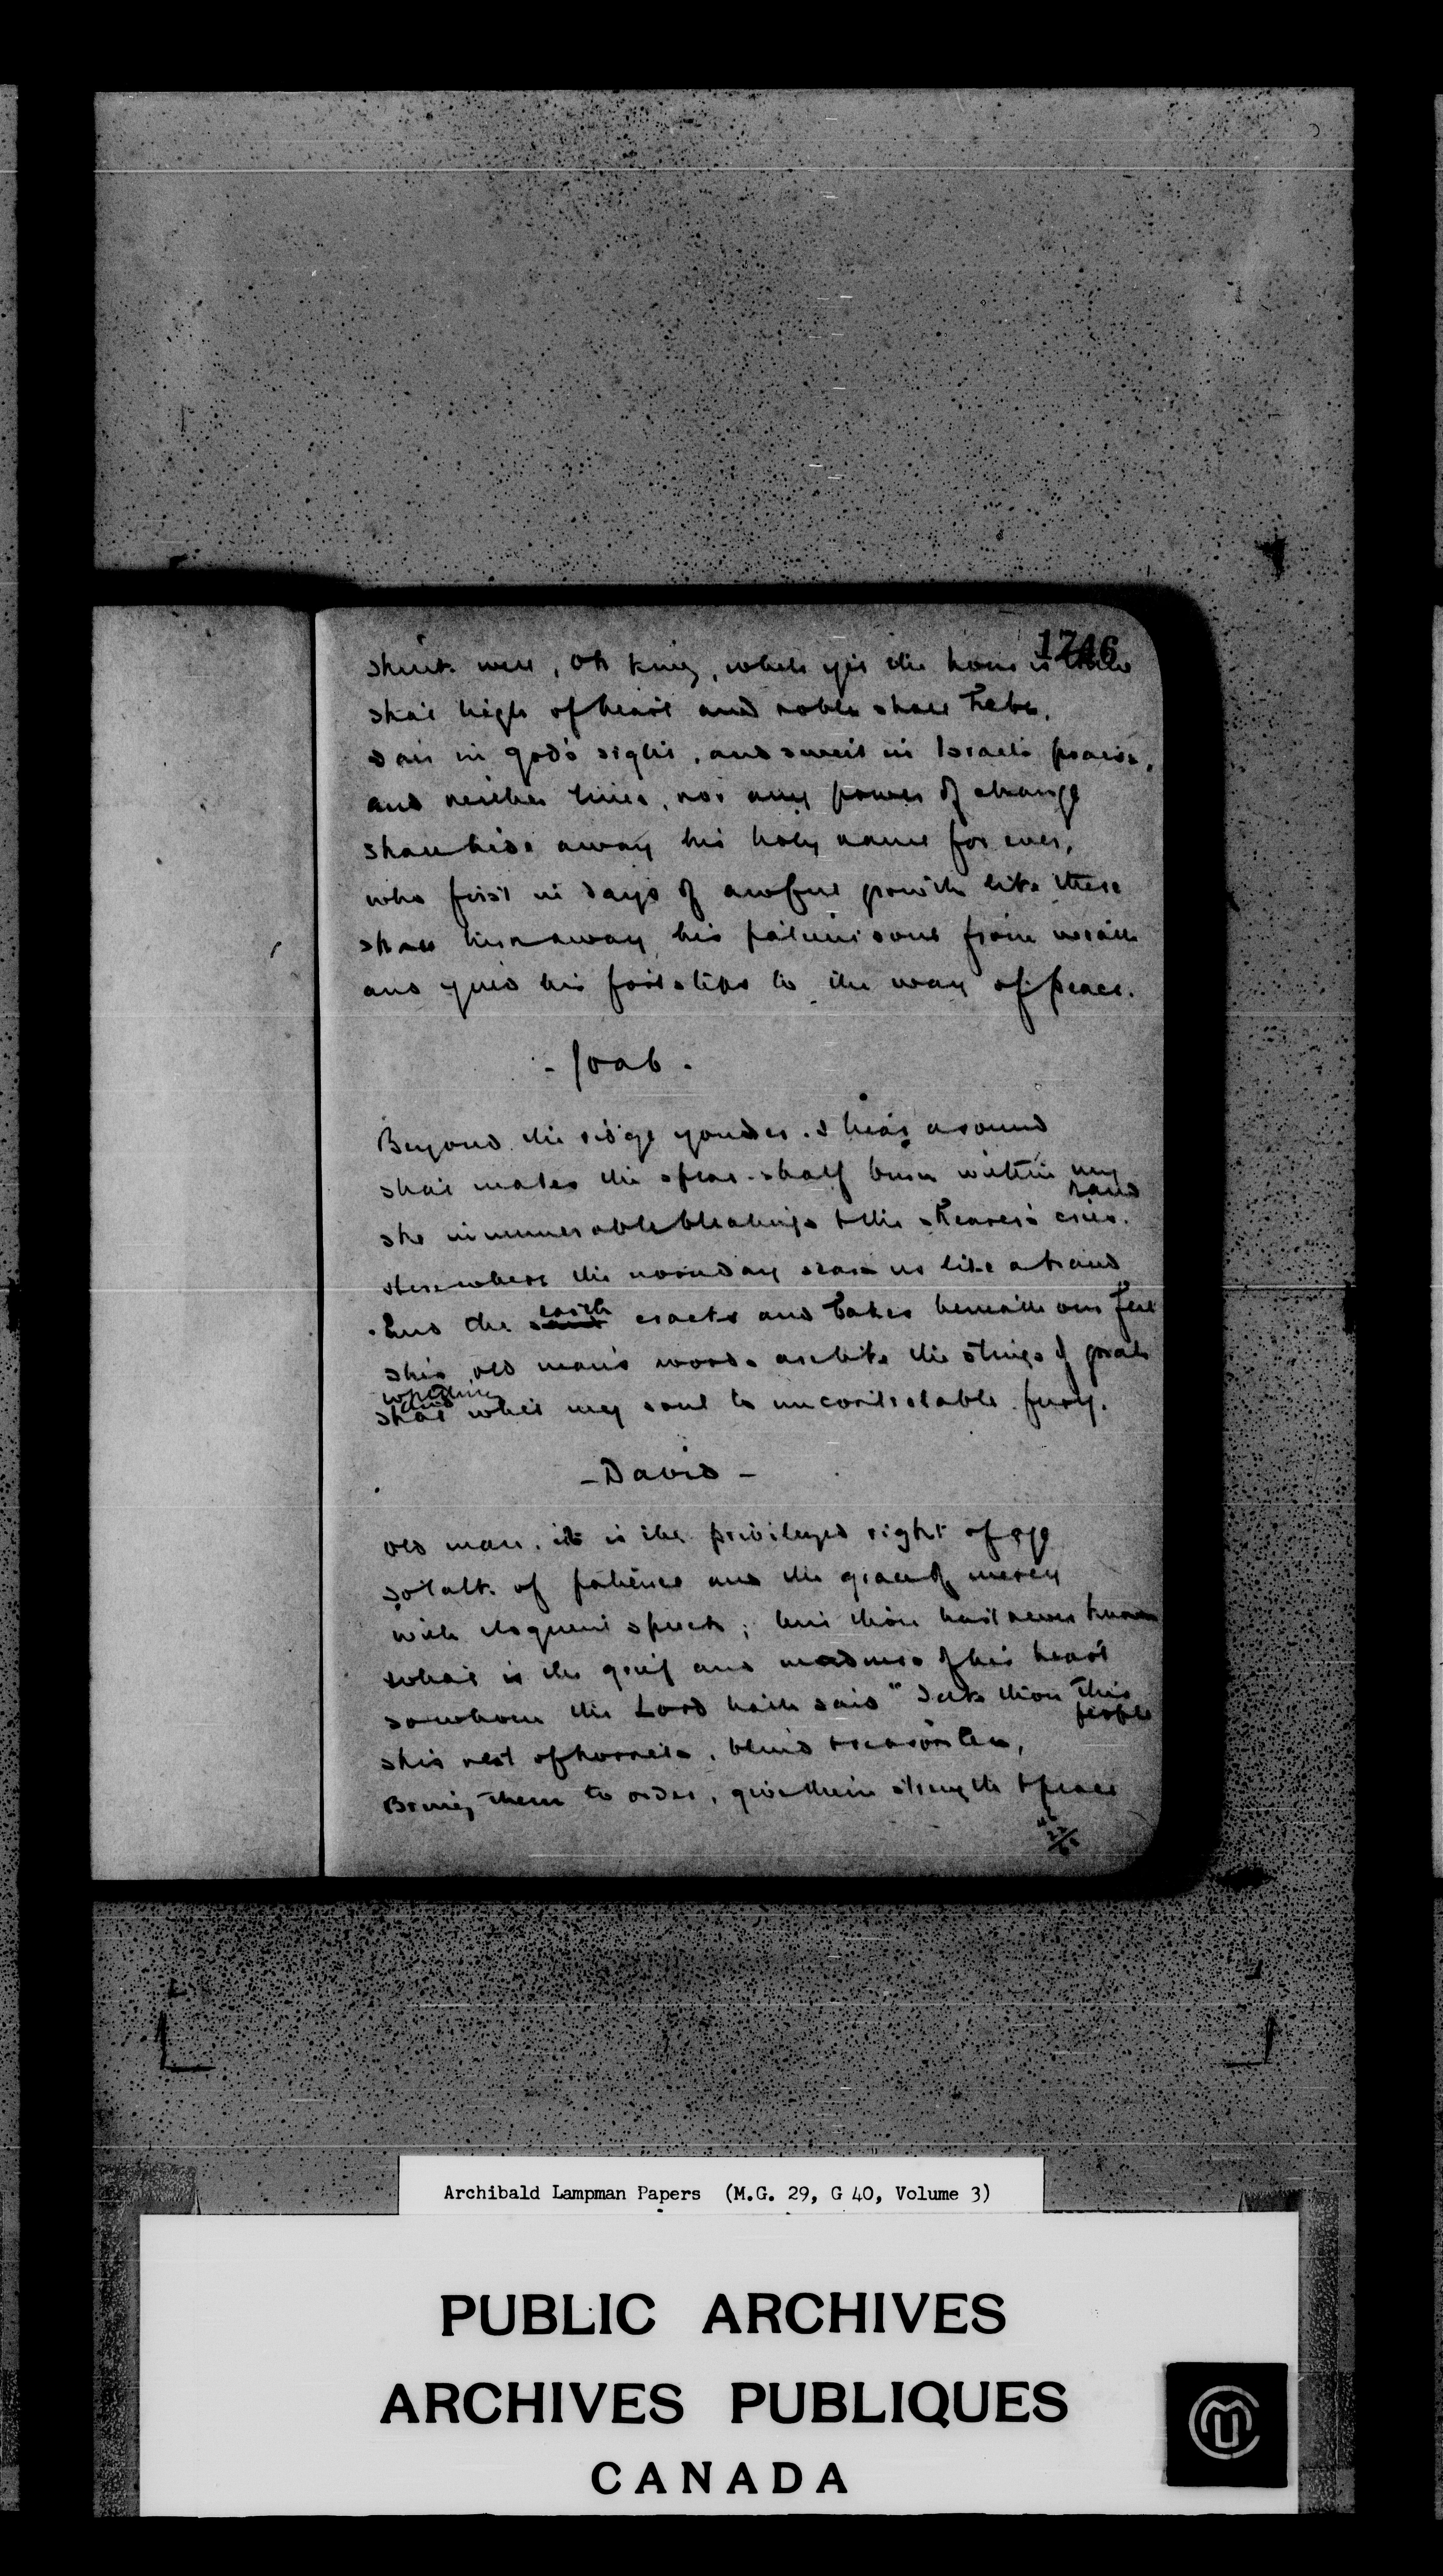 1746
Think well, oh king, while yet the hour is thine
That high of heart and noble shall he be,
Fair in God's sight, and sweet in Israel's praise,
And neither time, nor any power of change
Shall hide away his holy name for ever,
Who first in days of awful growth like these
Shall turn away his patient soul from wrath
And guid his footsteps to the way of peace.
- Joab -
Beyond the ridge yonder. I hear a sound
That makes the spear-shaft burn within my
hand
The innumerable bleatings & the shearer's cries.
Here where the noonday sears us like a brand
And the sand earth cracks and bakes beneath our feet
This old man's words are like the stings of goads
That whet my soul to uncontrollable fury.
- David -
Old man. it is the privileged right of age
To talk of patience and the grace of mercy
With eloquent speech; but thou hast never known
What is the grief and madness of his heart
To whom the Lord hath said "Take thou this
people
This nest of hornets, blind & reasonless,
Bring them to order, give them strength & peace
Archibald Lampman Papers (M.G. 29, G 40, Volume 3)
PUBLIC ARCHIVES
ARCHIVES PUBLIQUES
CANADA